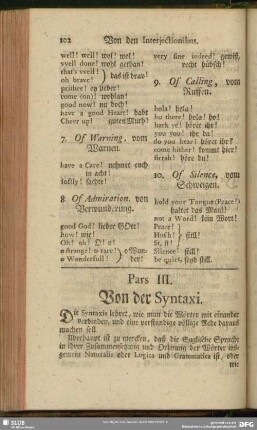 102 Von den Interjectionibus.
well! well! wol! wol!
vvell done! wohl gethan!
that's vvell!
oh brave! } das ist brav!
prithee! ey lieber!
come (on)! wohlan!
good now! nu doch!
have a good Heart! habt
Cheer up! guten Muth!
7. Of Warning, vom
Warnen.
have a Care! nehmt euch
in acht!
softly! sachte!
8 Of Admiration, von
Verwunderung.
good God! lieber GOtt!
how! wie!
Oh! oh! O! o!
o strange! o rare! } o Wun-
o Wonderfull! der!
very fine indeed! gewiß,
recht hübsch!
9. Of Calling, vom
Ruffen.
hola! hola!
hu there! hola! ho!
hark ye! höret ihr!
you you! ihr da!
do you hear! höret ihr!
come hither! kommt hier!
Sirrah! höre du!
10. Of Silence, vom
Schweigen.
hold your Tongue (Peace!)
haltet das Maul!
not a Word! kein Wort!
Peace!
Hush! } still!
St, st!
Silence! still!
be quiet, seyd still.
Pars III.
Von der Syntaxi.
Die Syntaxis lehret, wie man die Wörter mit einander
verbinden, und eine verständige völlige Rede daraus
machen soll.
Überhaupt ist zu mercken, daß die Englische Sprach
in ihrer Zusammensetzung und Ordnung der Wörter ins-
gemein Naturalis oder Logica und Grammatica ist, oder
wie
SLUB
DFG